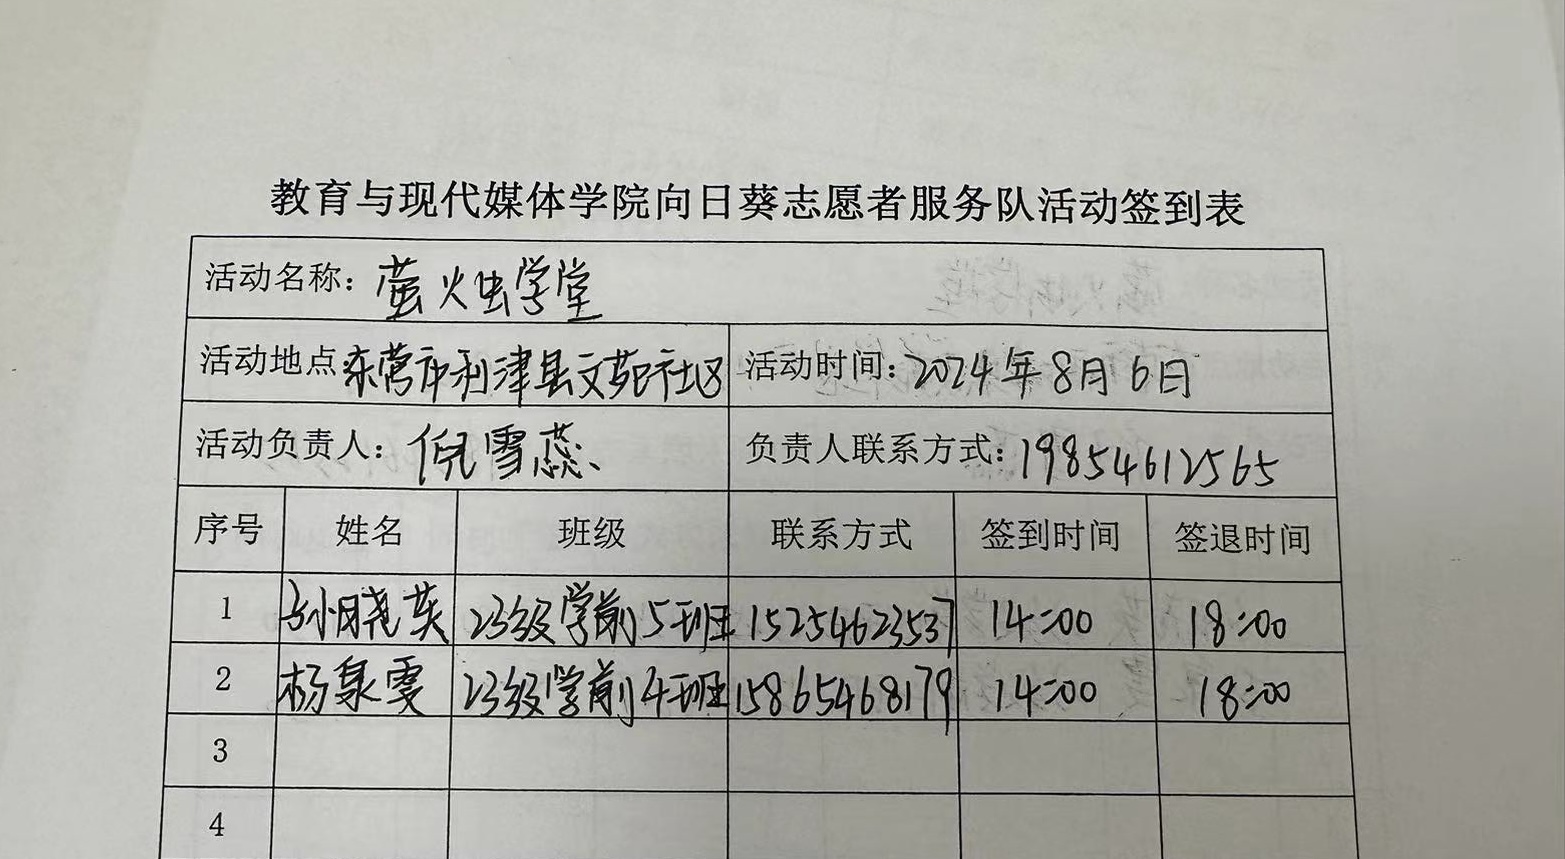 教育与现代媒体学院向日葵志愿者服务队活动签到表
活动名称：萤火虫学堂
活动地点 东营市利津县文苑社区 活动时间：2024年8月6日
活动负责人：倪雪蕊 负责人联系方式：19854612565
序号 姓名 班级 联系方式 签到时间 签退时间
1 孙晓英 23级学前5班 15254623537 14:00 18:00
2 杨泉雯 23级学前4班 15865468179 14:00 18:00
3
4